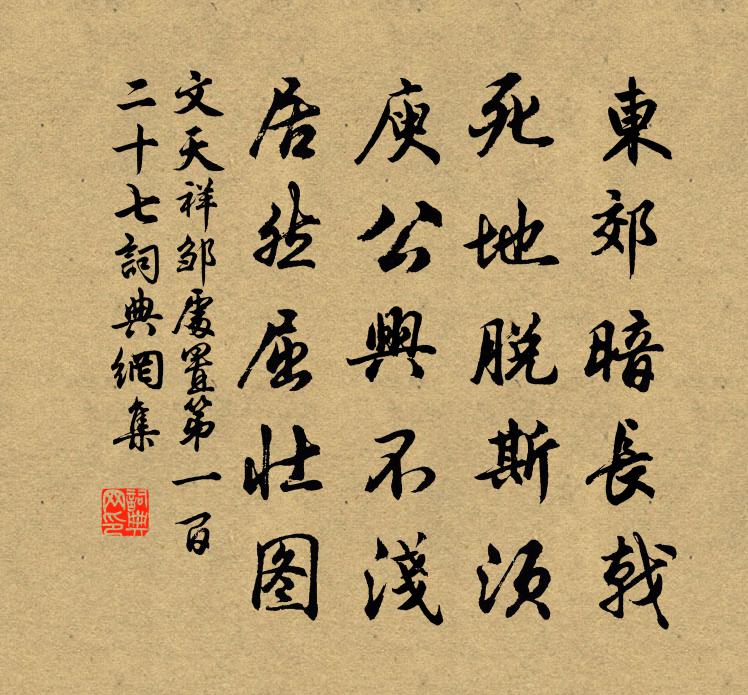 東郊暗長戟
死地脱斯須
庾公興不淺
居然屈壮图
文天祥邹處置第一百
二十七詞典網集
詞典
网印